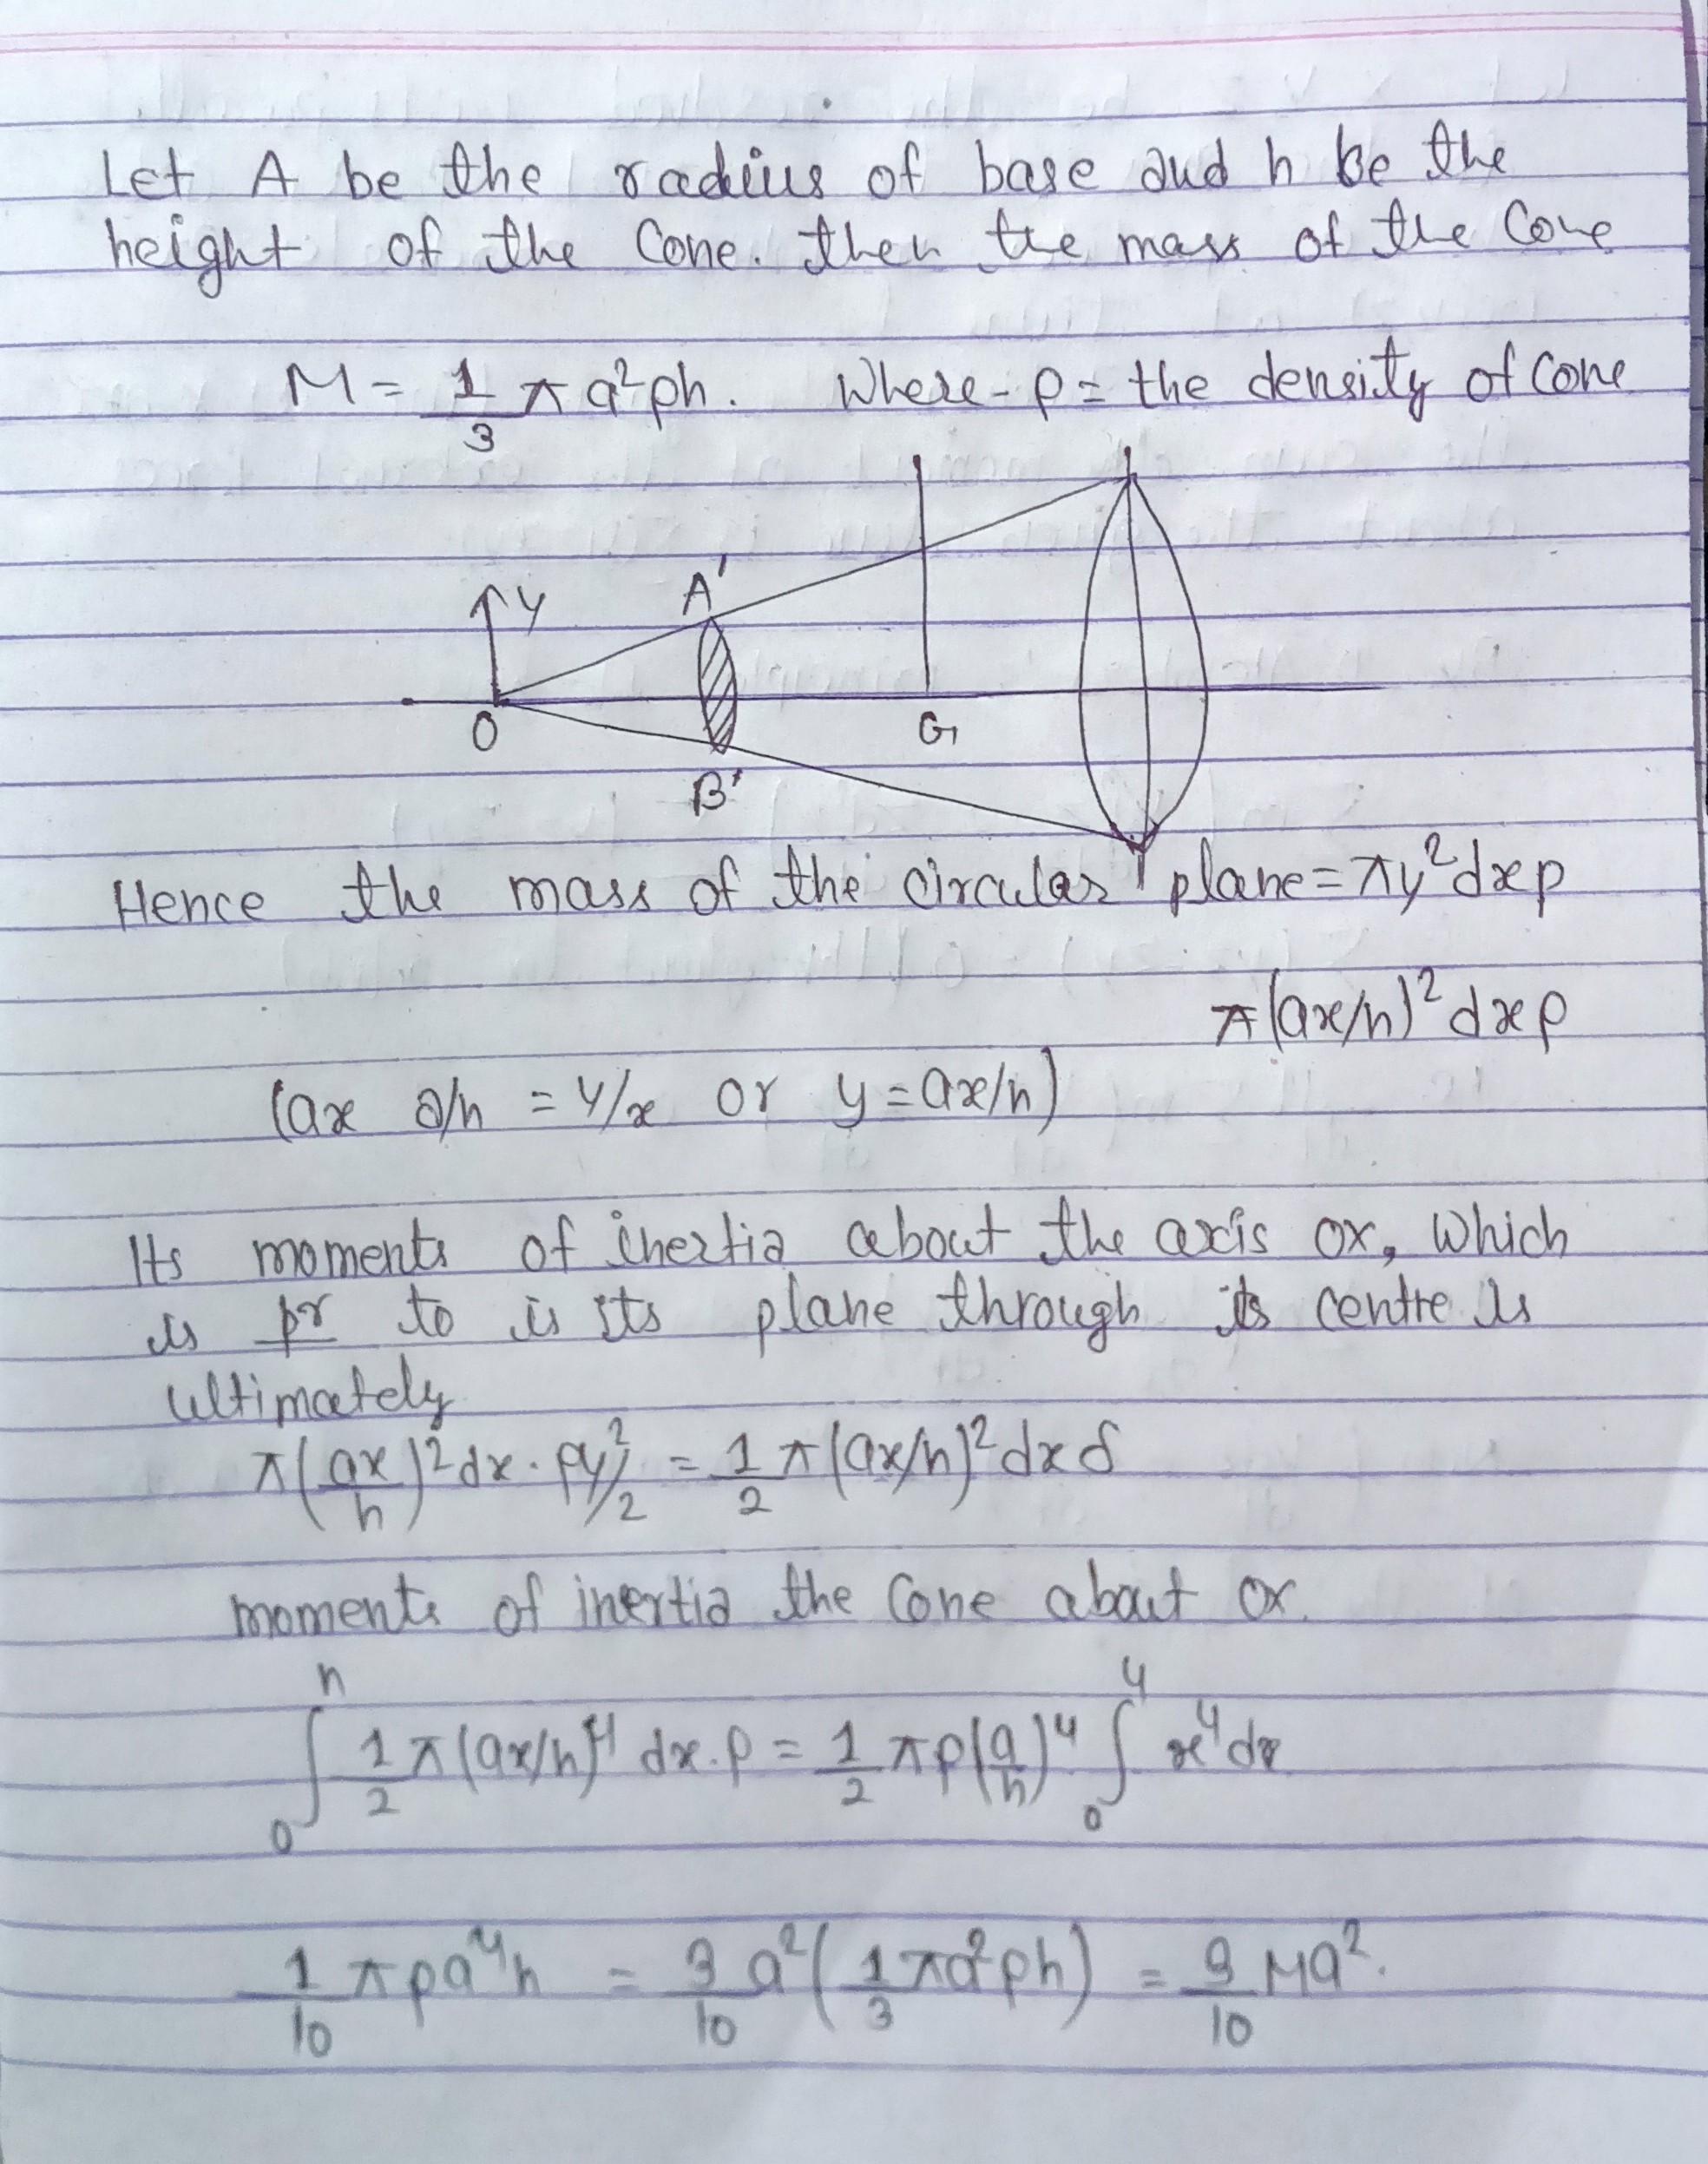 Let A be the radius of base and h be the
height of the Cone. then the mass of the Cone
M = 1/3 π a²ρh. Where - ρ = the density of Cone
A'
y
O
G
B'
Hence the mass of the circular plane = πy²dxρ
π(ax/h)²dxρ
(ax a/h = y/x or y = ax/h)
Its moments of inertia about the axis ox, which
is pr to is its plane through its centre is
ultimately
π(ax/h)²dx · ρy²/2 = 1/2 π(ax/h)²dxδ
moments of inertia the Cone about ox.
∫₀ʰ 1/2 π(ax/h)⁴ dx.ρ = 1/2 πρ(a/h)⁴ ∫₀⁴ x⁴dx
1/10 πρa⁴h = 3/10 a²(1/3 πa²ρh) = 3/10 Ma².